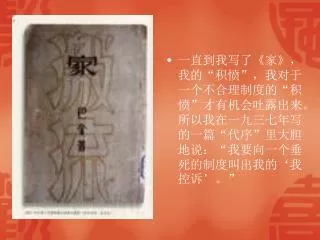 激流
家
巴金著
• 一直到我写了《家》,
我的“积愤”,我对于
一个不合理制度的“积
愤”才有机会吐露出来。
所以我在一九三七年写
的一篇“代序”里大胆
地说:“我要向一个垂
死的制度叫出我的‘我
控诉’。”